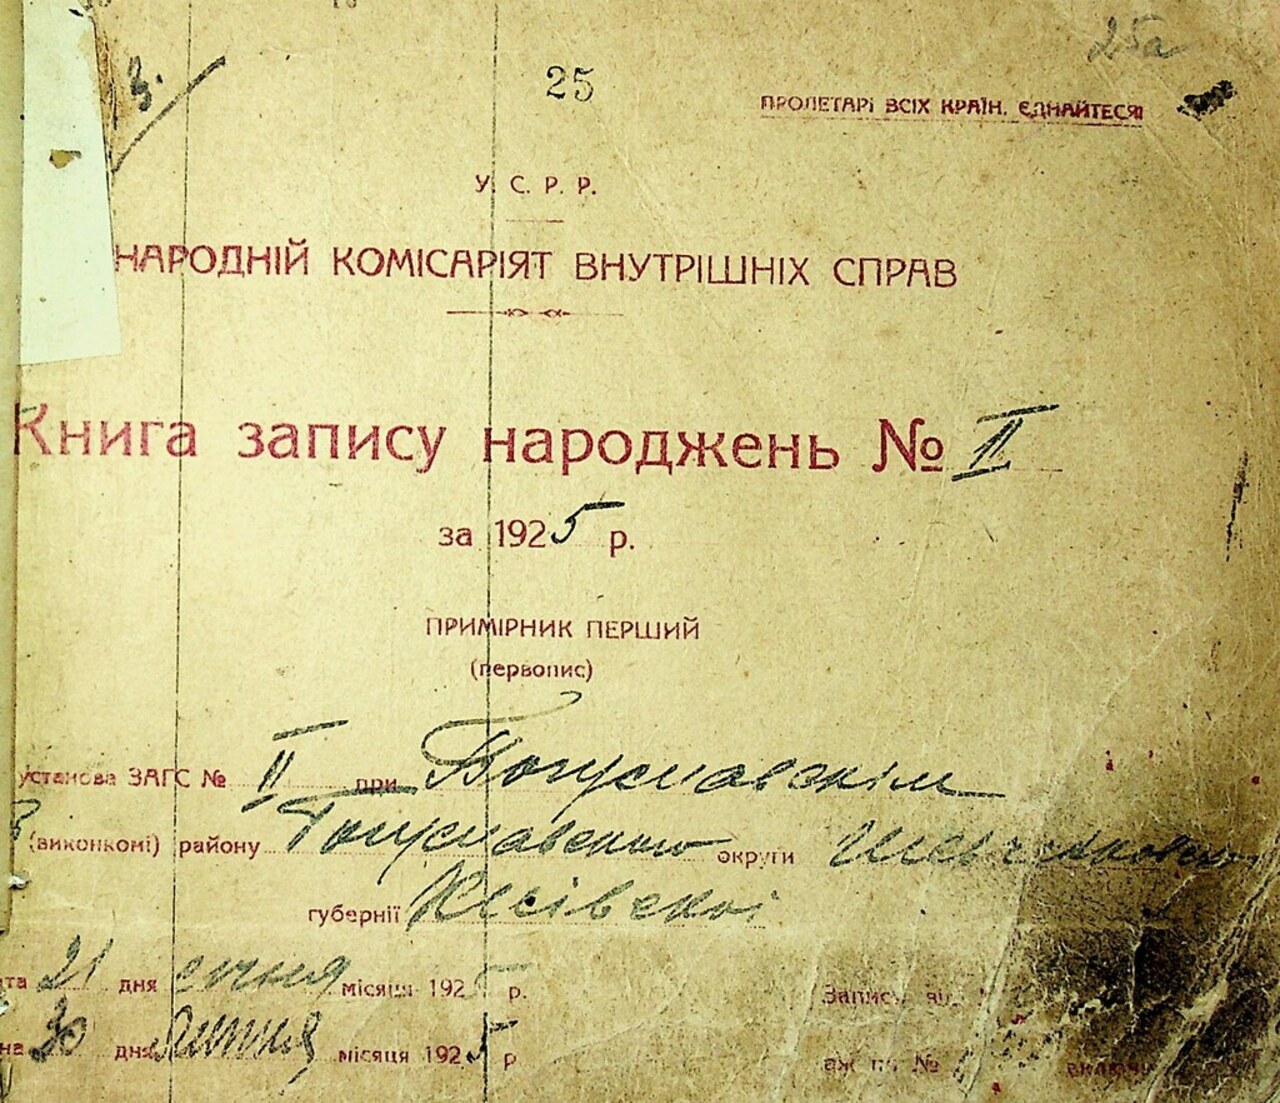 25а
3.
25
ПРОЛЕТАРІ ВСІХ КРАЇН, ЄДНАЙТЕСЯ!
У. С. Р. Р.
НАРОДНІЙ КОМІСАРІЯТ ВНУТРІШНІХ СПРАВ
Книга запису народжень № II
за 1925 р.
ПРИМІРНИК ПЕРШИЙ
(первопис)
установа ЗАГС № II при Богуславскім
(виконкомі) району Богуславского округи Шевченковск
губернії Київскої
та 21 дня січня місяця 1925 р.
на 30 дня липня місяця 1925 р
Запис від
аж по № включ